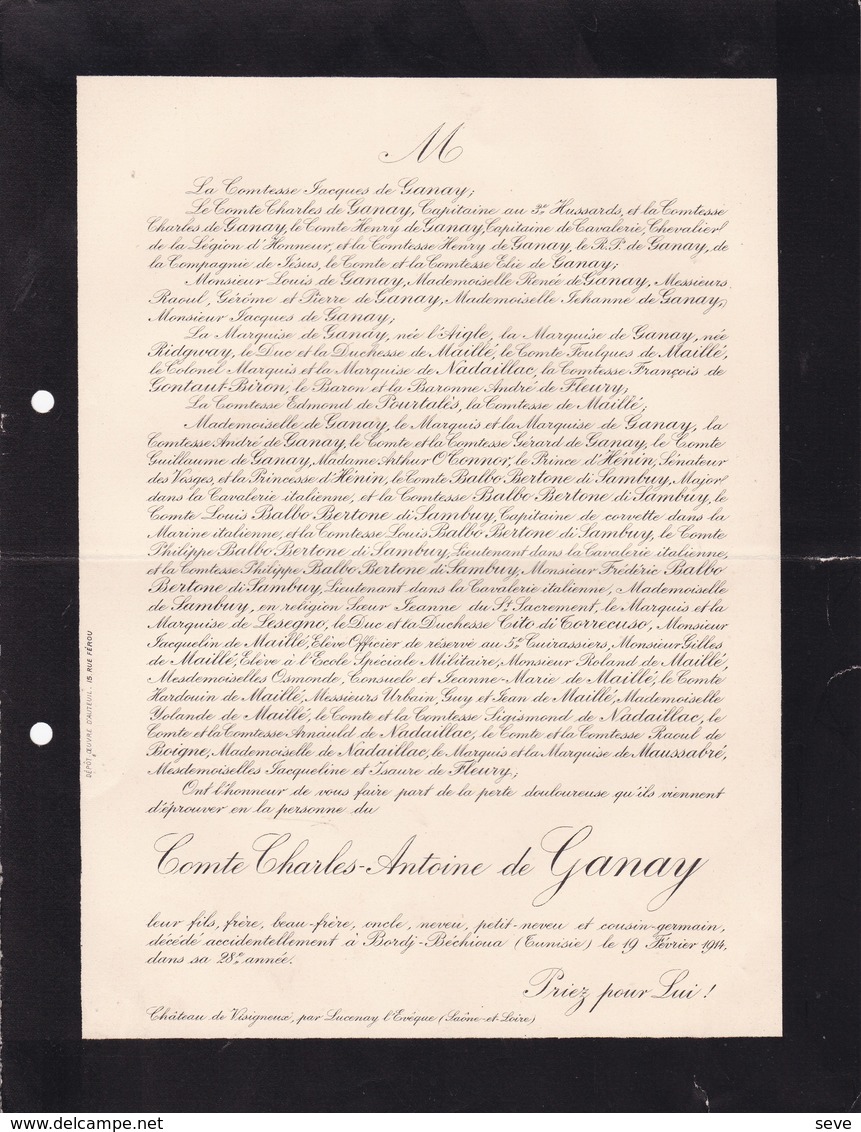 M
La Comtesse Jacques de Ganay;
Le Comte Charles de Ganay, Capitaine au 3e Hussards, et la Comtesse
Charles de Ganay, le Comte Henry de Ganay, Capitaine de Cavalerie, Chevalier
de la Légion d'Honneur, et la Comtesse Henry de Ganay, le R.P. de Ganay, de
la Compagnie de Jésus, le Comte et la Comtesse Elie de Ganay;
Monsieur Louis de Ganay, Mademoiselle Renée de Ganay, Messieurs
Raoul, Gérôme et Pierre de Ganay, Mademoiselle Jehanne de Ganay,
Monsieur Jacques de Ganay;
La Marquise de Ganay, née l'Aigle, la Marquise de Ganay, née
Ridgway, le Duc et la Duchesse de Maillé, le Comte Foulques de Maillé,
le Colonel Marquis et la Marquise de Nadaillac, la Comtesse François de
Gontaut-Biron, le Baron et la Baronne André de Fleury;
La Comtesse Edmond de Pourtalès, la Comtesse de Maillé;
Mademoiselle de Ganay, le Marquis et la Marquise de Ganay, la
Comtesse André de Ganay, le Comte et la Comtesse Gérard de Ganay, le Comte
Guillaume de Ganay, Madame Arthur O'Connor, le Prince d'Hénin, Sénateur
des Vosges, et la Princesse d'Hénin, le Comte Balbo Bertone di Sambuy, Major
dans la Cavalerie italienne, et la Comtesse Balbo Bertone di Sambuy, le
Comte Louis Balbo Bertone di Sambuy, Capitaine de corvette dans la
Marine italienne, et la Comtesse Louis Balbo Bertone di Sambuy, le Comte
Philippe Balbo Bertone di Sambuy, Lieutenant dans la Cavalerie italienne,
et la Comtesse Philippe Balbo Bertone di Sambuy, Monsieur Frédéric Balbo
Bertone di Sambuy, Lieutenant dans la Cavalerie italienne, Mademoiselle
de Sambuy, en religion Sœur Jeanne du St Sacrement, le Marquis et la
Marquise de Lesegno, le Duc et la Duchesse Cito di Torrecuso, Monsieur
Jacquelin de Maillé, Elève Officier de réserve au 5e Cuirassiers, Monsieur Gilles
de Maillé, Elève à l'Ecole Spéciale Militaire, Monsieur Roland de Maillé,
Mesdemoiselles Osmonde, Consuelo et Jeanne-Marie de Maillé, le Comte
Hardouin de Maillé, Messieurs Urbain, Guy et Jean de Maillé, Mademoiselle
Yolande de Maillé, le Comte et la Comtesse Sigismond de Nadaillac, le
Comte et la Comtesse Arnauld de Nadaillac, le Comte et la Comtesse Raoul de
Boigne, Mademoiselle de Nadaillac, le Marquis et la Marquise de Maussabré,
Mesdemoiselles Jacqueline et Isaure de Fleury;
Ont l'honneur de vous faire part de la perte douloureuse qu'ils viennent
d'éprouver en la personne du
Comte Charles-Antoine de Ganay
leur fils, frère, beau-frère, oncle, neveu, petit-neveu et cousin-germain,
décédé accidentellement à Bordj-Béchioua (Tunisie) le 19 Février 1914,
dans sa 28e année.
Priez pour Lui !
Château de Visigneux, par Lucenay l'Evêque (Saône-et-Loire)
DÉPÔT ŒUVRE D'AUTEUIL. 15 RUE FÉROU
seve